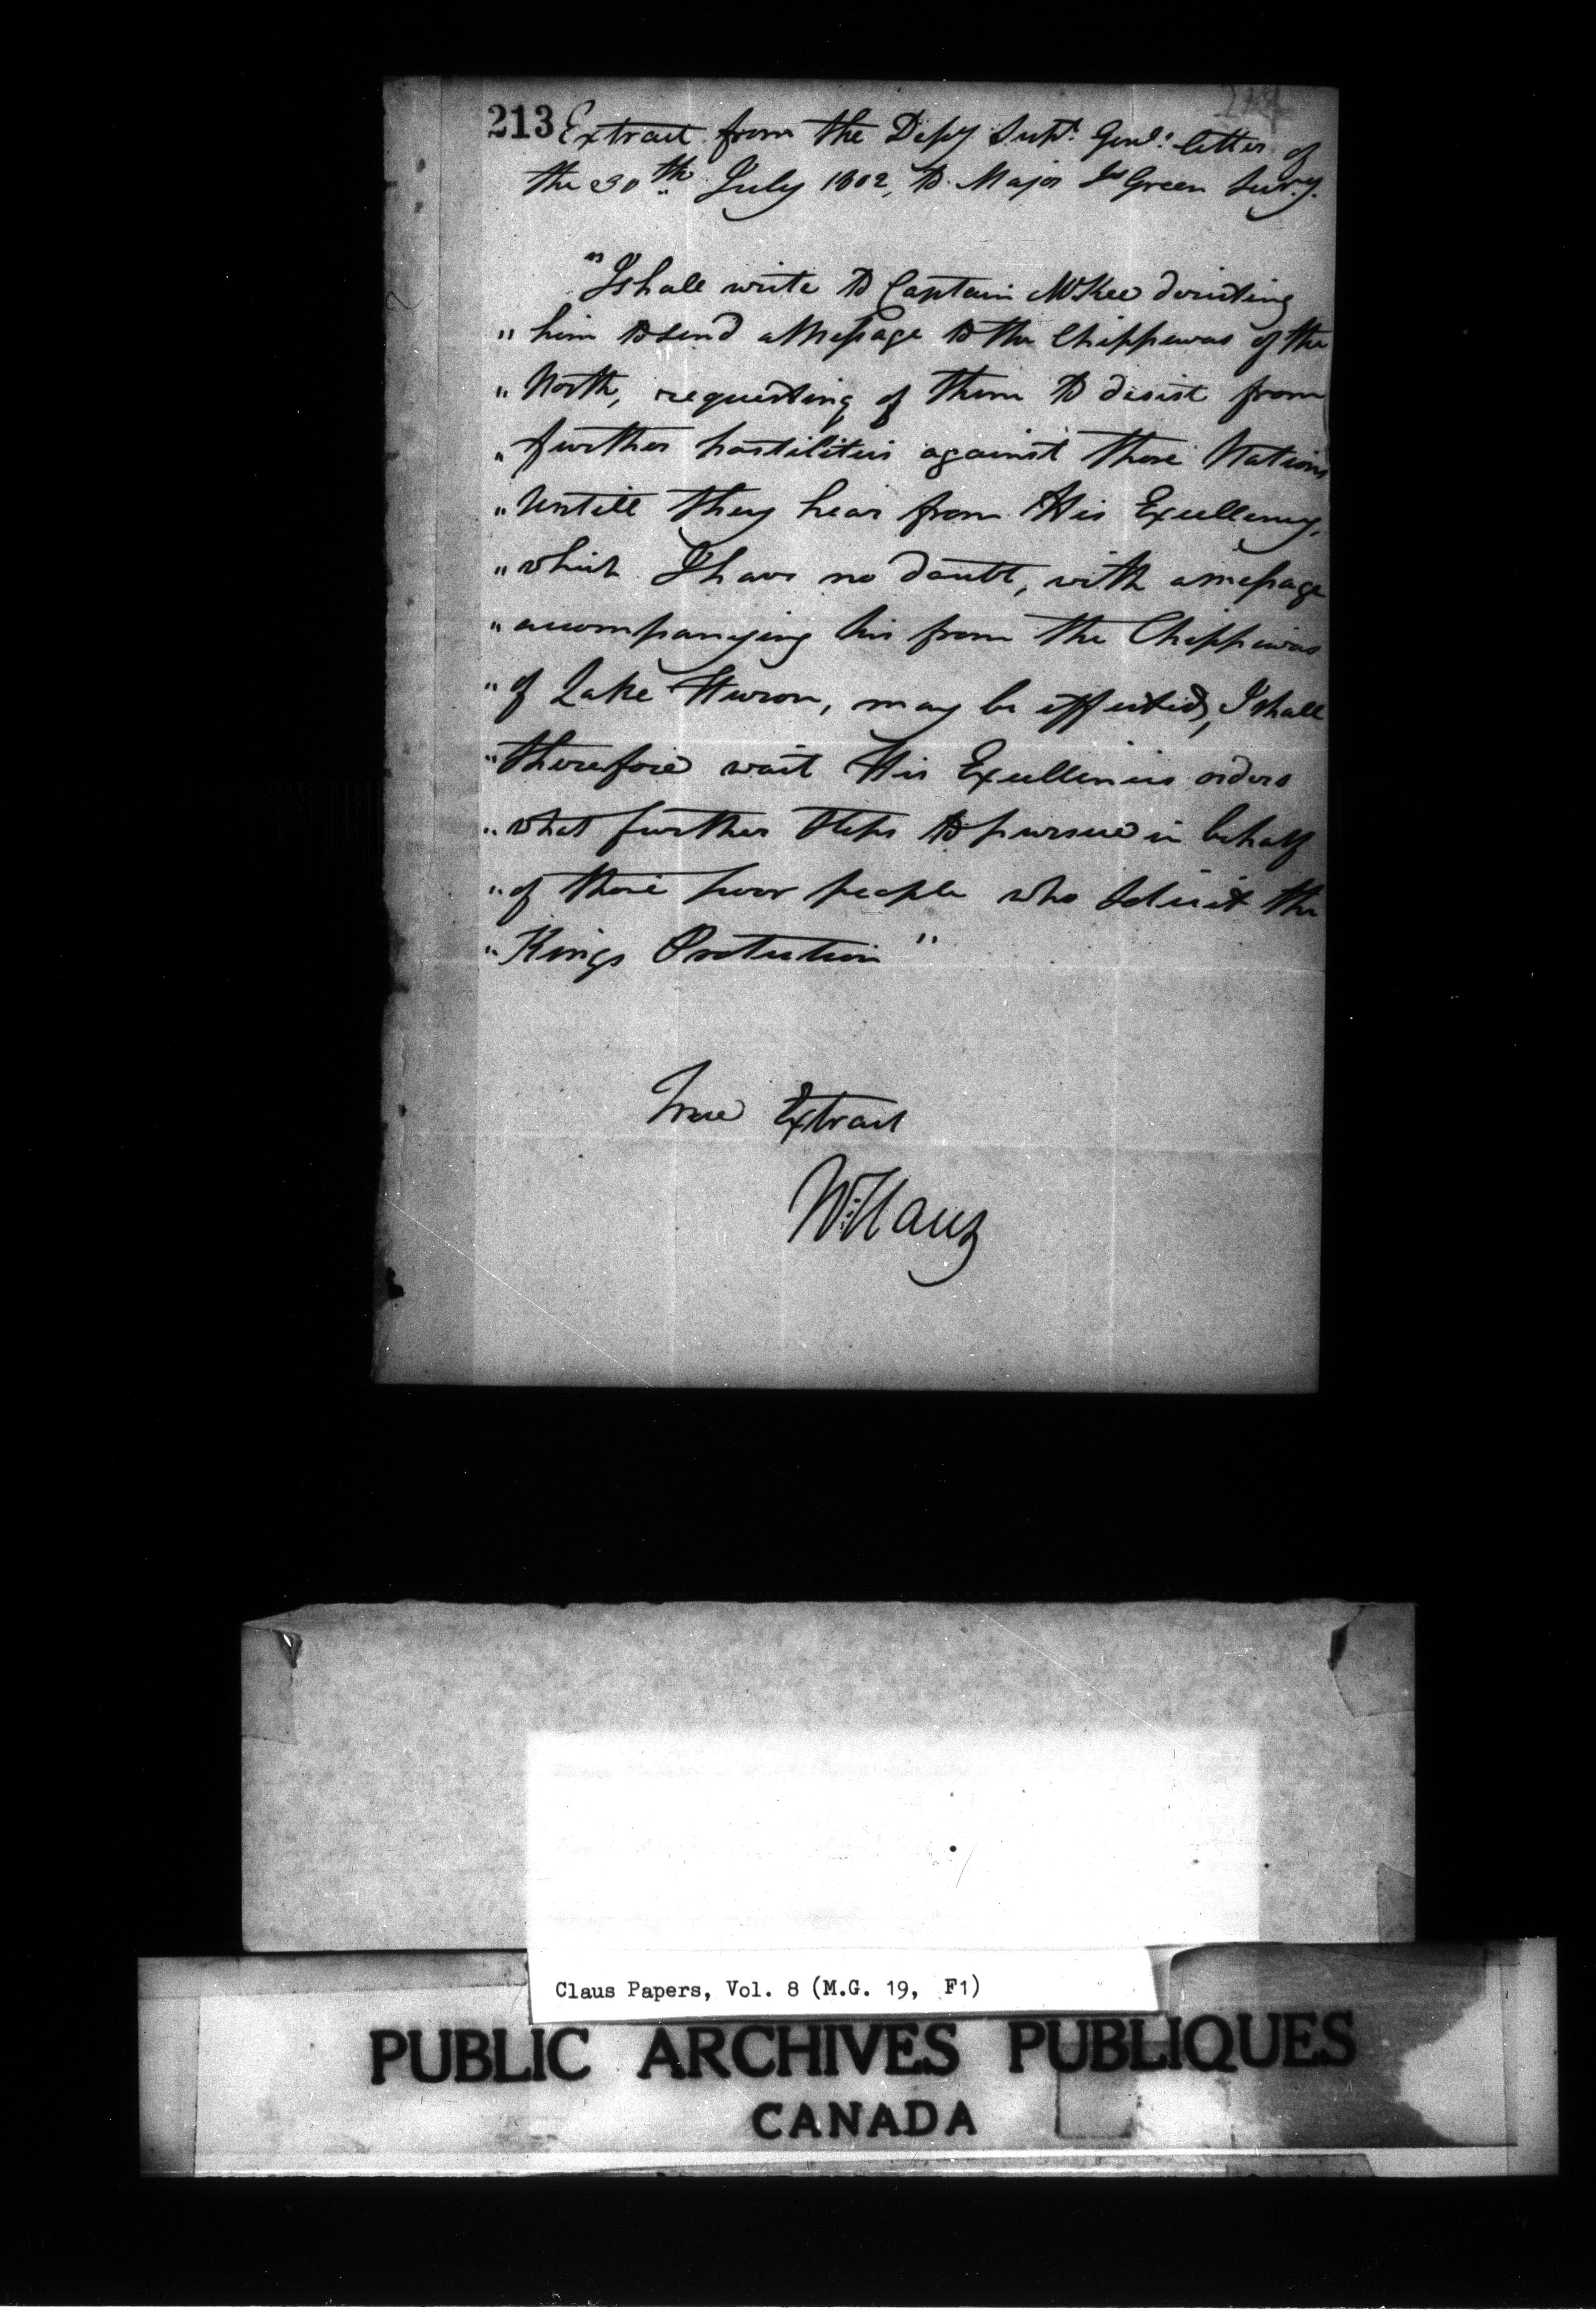 213 Extract from the Depy Supt. Genl: letter of
the 30th July 1802, to Major Js Green Secry.
"I shall write to Captain McKee directing
" him to send a Message to the Chippewas of the
" North, requesting of them to desist from
" further hostilities against those Nations
" Untill they hear from His Excellency,
" which I have no doubt, with a message
" accompanying his from the Chippewas
" of Lake Huron, may be effected, I shall
" therefore wait His Excellencies orders
" what further Steps to pursue in behalf
" of those poor people who Solicit the
" Kings Protection "
True Extract
W: Claus
Claus Papers, Vol. 8 (M.G. 19, F1)
PUBLIC ARCHIVES PUBLIQUES
CANADA